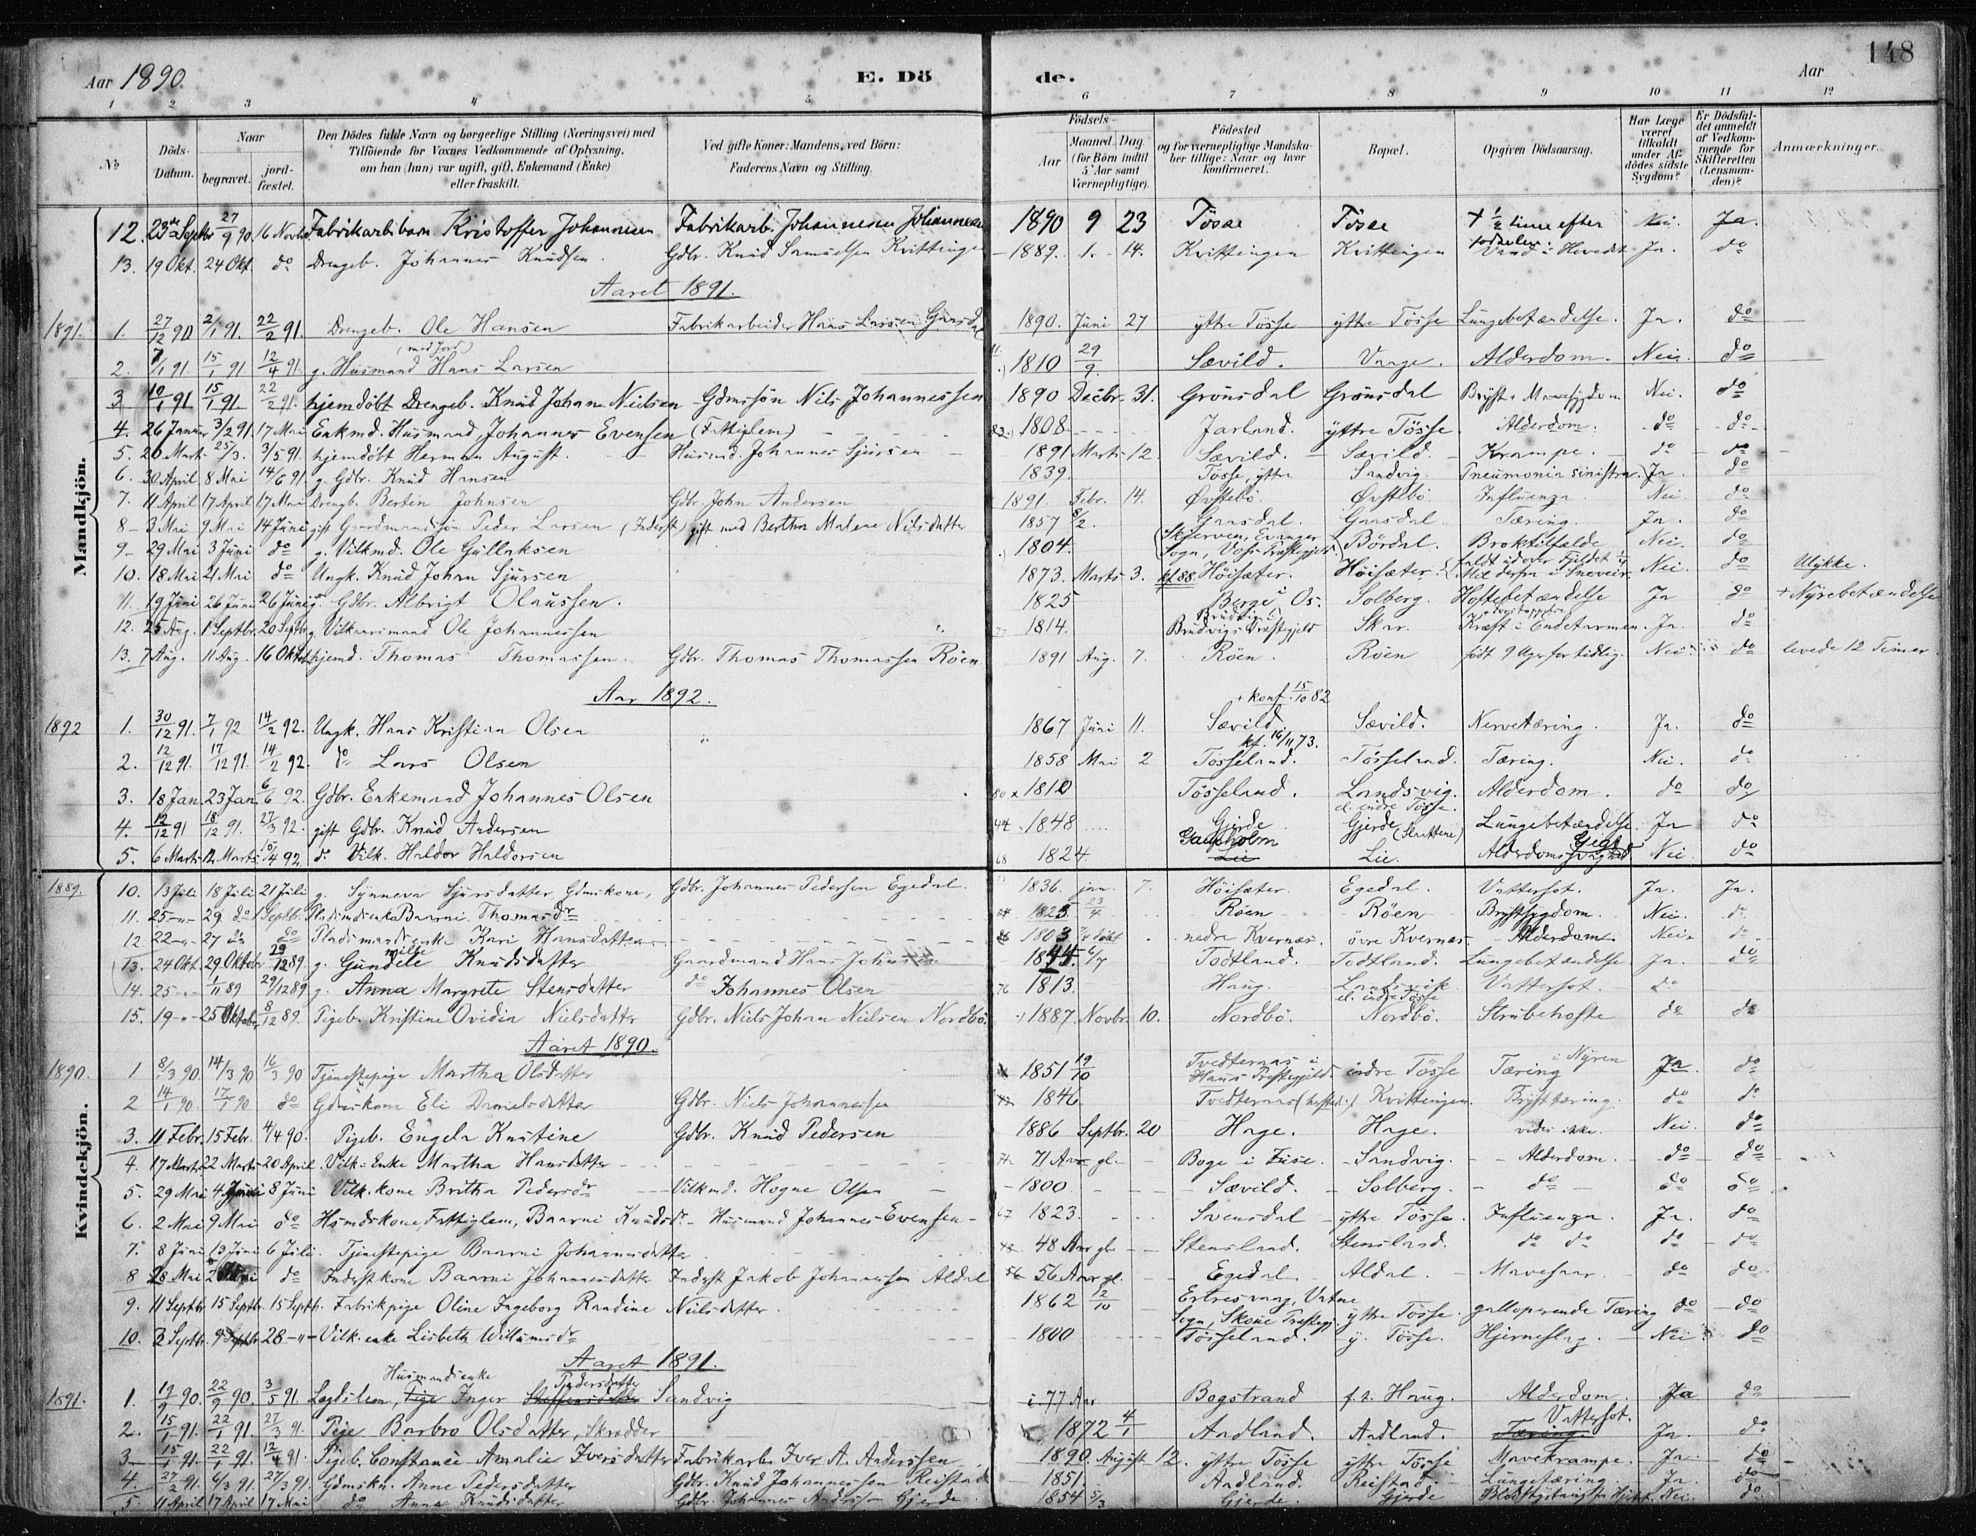 Aar 1890. E. Dö de. Aar 148
1 2 3 4 5 6 7 8 9 10 11 12
№ Döds-Datum. Naar begravet. jord-fæstet. Den Dödes fulde Navn og borgerlige Stilling (Næringsvei) med Tilföiende for Voxnes Vedkommende af Oplysning, om han (hun) var ugift, gift, Enkemand (Enke) eller fraskilt. Ved gifte Koner: Mandens, ved Börn: Faderens Navn og Stilling. Födsels- Aar Maaned. Dag. (for Börn indtil 5 Aar samt Værnepligtige). Födested og for værnepligtige Mandskaber tillige: Naar og hvor konfirmeret. Bopæl. Opgiven Dödsaarsag. Har Læge været tilkaldt under Afdödes sidste Sygdom? Er Dödsfaldet anmeldt af Vedkommende for Skifteretten (Lensmanden)? Anmærkninger.
Mandkjön.
12. 23de Septbr 27/9 90. 16 Novbr Fabrikarb. barn Kristoffer Johannesen Fabrikarb. Johannesen Johannesen 1890 9 23 Tösse Tösse + 1/2 time efter födselen Nei. Ja.
13. 19 Okt. 24 Okt. do Drengeb. Johannes Knudsen. Gdbr. Knud Samuelsen Kvittingen 1889. 1. 14. Kvittingen Kvittingen Vand i Hovedet Ja. do
Aaret 1891.
1891. 1. 27/12 90 2/1 91. 22/2 91. Drengeb. Ole Hansen Fabrikarbeider Hans Larsen Gaasdal 1890. Juni 27 ytre Tösse ytre Tösse Lungebetændelse. Ja. do
2. 7/1 91. 15/1 91 12/4 91. g. Husmand (med Jord) Hans Larsen 1810 29/9. Sævild. Vaage. Alderdom. Nei. do
3 10/1 91 15/1 91. 22/2 91. hjemdöbt Drengeb. Knud Johan Nielsen Gdmssön Nils Johannessen 1890 Decbr. 31. Grönsdal Grönsdal Bryst & Mavesygdom Nei. do
4. 26 Januar 3/2 91. 17 Mai Enkmd. Husmand Johannes Evensen (Fattiglem) 82. 1808. Jarland. ytre Tösse. Alderdom. do do
5. 20 Marts 25/3. 3/5 91. hjemdöbt Herman August. Husmd. Johannes Sjursen 1891 Marts 12. Sævild. Sævild. Krampe. do do
6. 30 April 8 Mai 14/6 91. g. Gdbr. Knud Hansen 1839. Tösse, ytre Sandvig. Pneumonia sinistra. Ja. do
7. 11 April 17 April 17 Mai Drengb. Bertin Johnsen Gdbr. John Andersen 1891. Febr. 14. Øvstebö. Øvstebö. Influenza. Nei. do
8 3 Mai 9 Mai 14 Juni gift Gaardmandssön Peder Larsen (Inderst) gift med Bertha Malene Nilsdatter 1857 8/2. Gaasdal. Gaasdal. Tæring. Ja. do
9 29 Mai 3 Juni do g. Vilkmd. Ole Gullaksen 1804. (Skjerven, Evanger Sogn, Voss Præstegjeld.) Bördal. Broktilfælde Nei. do
10. 18 Mai 21 Mai do Ungk. Knud Johan Sjursen 1873. Marts 3. kf 88. Höisæter. Höisæter. faldt udover Fjeldet i Sneveir. Nei. do Ulykke.
11. 19 Juni 26 Juni 26 Juni g. Gdbr. Albrigt Olaussen. 1825 Berge i Os. Solberg. Hoftebetændelse Ja do + Nyrebetændelse
12. 25 Aug. 1 Septbr. 20 Septbr g. Vilkaarsmand Ole Johannessen 1814. Brudvigs Præstegjeld Skar. Kræft i Endetarmen. Ja. do
13. 7 Aug. 11 Aug. 16 Oktob hjemd. Thomas Thomassen. Gdbr. Thomas Thomassen Röen. 1891 Aug. 7. Röen. Röen födt 9 Uger for tidlig. Nei do levede 12 Timer
Aar 1892.
1892 1. 30/12 91. 7/1 92 14/2 92. Ungk. Hans Kristian Olsen 1867 Juni 11. + konf. 15/10 82 Sævild. Sævild. Nervetæring. Ja. do
2. 12/12 91. 17/12 91. 14/2 92. do Lars Olsen 1858 Mai 2 kf. 16/11 73. Tösseland. Tösseland. Tæring. Nei. do
3. 18 Jan. 23 Jan. 6/6 92. Gdbr. Enkemand Johannes Olsen 80 1810 Tösseland. Landsvig. el. indre Tösse. Alderdom. do do
4. 12/12 91 18/12 91. 27/3 92. gift Gdbr. Knud Andersen 44 1848 Gjerde Gjerde (Slettene) Lungebetændelse. Ja do
5. 6 Marts 12 Marts 10/4 92. do Vilk. Haldor Haldorsen 68 1824. Gaupholm Lie Lie. Alderdomssvaghed Gigt Nei. do
Kvindekjön.
1889. 10. 13 Juli 18 Juli 21 Juli g. Synneva Sjursdatter Gdmskone, Gdbr. Johannes Pedersen Egedal. 1836. jan. 7. Höisæter. Egedal. Vattersot. Ja. Ja.
11. 25 29 do 1 Septbr. Pladsmdsenke Baarni Thomasdr 23/4 Röen Röen Brystsygdom. Nei. do
12 22 27 do do Pladsmandsenke Kari Hansdatter 1803 nedre Kvernæs. övre Kvernæs. Alderdom Nei do
13. 24 Okt. 29 Oktobr 29/12 89. g. Gundele Knudsdatter Gaardmand Hans 6/7 Todtland. Todtland. Lungebetændelse Ja. do
14. 25 1/11 89 29/12 89 g. Anna Margrete Stensdatter do Johannes Olsen 76 1813. Haug. Landsvik. el. indre Tösse Vattersot. do
15. 19 25 Oktober 8/12 89. Pigeb. Kristine Ovidia Nielsdatter Gdbr. Niels Johan Nielsen Nordbö. 1887. Novbr. 10. Nordbö. Nordbö. Strubehoste do do
Aaret 1890.
1890. 1 8/3 90. 14/3 90 16/3 90 Tjenestepige Martha Olsdatter 1851 19/10 Tvedternæs i Haus Præstegjeld. indre Tösse Tæring i Nyren Ja do
2 14/1 90. 17/1 90 do Gdmskone Eli Danielsdatter Gdbr. Niels Johannessen 1846. Tvedternæs Kvittingen. Brysttæring. do do
3. 11 Febr. 15 Febr. 4/4 90. Pigeb. Engela Kristine Gdbr. Knud Pedersen 1886 Septbr. 20 Hage. Hage. vides ikke. Nei. do
4. 17 Marts 22 Marts 20 April Vilk. Enke Martha Hansdatter 71 Aar gl. Boge i Sandvig. Alderdom. do do
5. 29 Mai 4 Juni 8 Juni Vilk. kone Britha Pedersdr Vilkmd. Hogne Olsen 1800 Sævild. Solberg. do do do
6. 2 Mai 9 Mai do Hsmdskone, Fattiglem, Baarni Knudsdr Husmand Johannes Evensen 67 1823. Svensdal ytre Tösse. Influenza. Ja. do
7. 8 Juni 13 Juni 6 Juli. Tjenestepige Baarni Johannesdatter 48 Aar gl Stensland. Stensland. do do do do
8 28 Mai do Inderstkone Baarni Johannesdatter Inderst Jakob Johannesen Aldal 56 Aar gl. Egedal Aldal. Mavesaar. do do
9. 11 Septbr. 15 Septbr. 15 Septb. Fabrikpige Oline Ingeborg Raudine Nielsdatter. 1862 12/10 Vatne Sogn, Skone Præstegj. ytre Tösse. galloperende Tæring do do
10. 3 Septbr. 9 Septbr 28 Vilk. enke Lisbeth Willumsdr 1800 Tösseland. y. Tösse. Hjerneslag. Nei do
Aaret 1891.
1891. 1. 17/9 90. 22/9 90. 3/5 91. Lægdslem, Husmandsenke Inger Pedersdatter Sandvig 77 Aar Bogstrand f. t. Haug. Alderdom. Ja do
2. 15/1 91. 22/1 91. 27/3 91. Pige Barbro Olsdatter, Skrædder 1872 4/1 Aadland. Aadland. Tæring Vattersot. Ja. do
3 15/1 91. 22/1 91. 12/4 91. Pigeb. Constance Amalie Iversdatter Fabrikarb. Iver A. Anderssen 1890. August 12. ytre Tösse ytre Tösse Mavekrampe. Ja. do
4. 27/2 91. 6/3 91. 27/3 91. Gdmskn. Anne Pedersdatter Gdbr. Knud Johannessen Reistad 1851. Aadland. Reistad. Lungetæring. Ja. do
5. 11 April 17 April 17 Mai do Anna Knudsdatter Gdbr. Johannes Anders Gjerde. 1854 5/3 Gjerde. Gjerde Nei. do